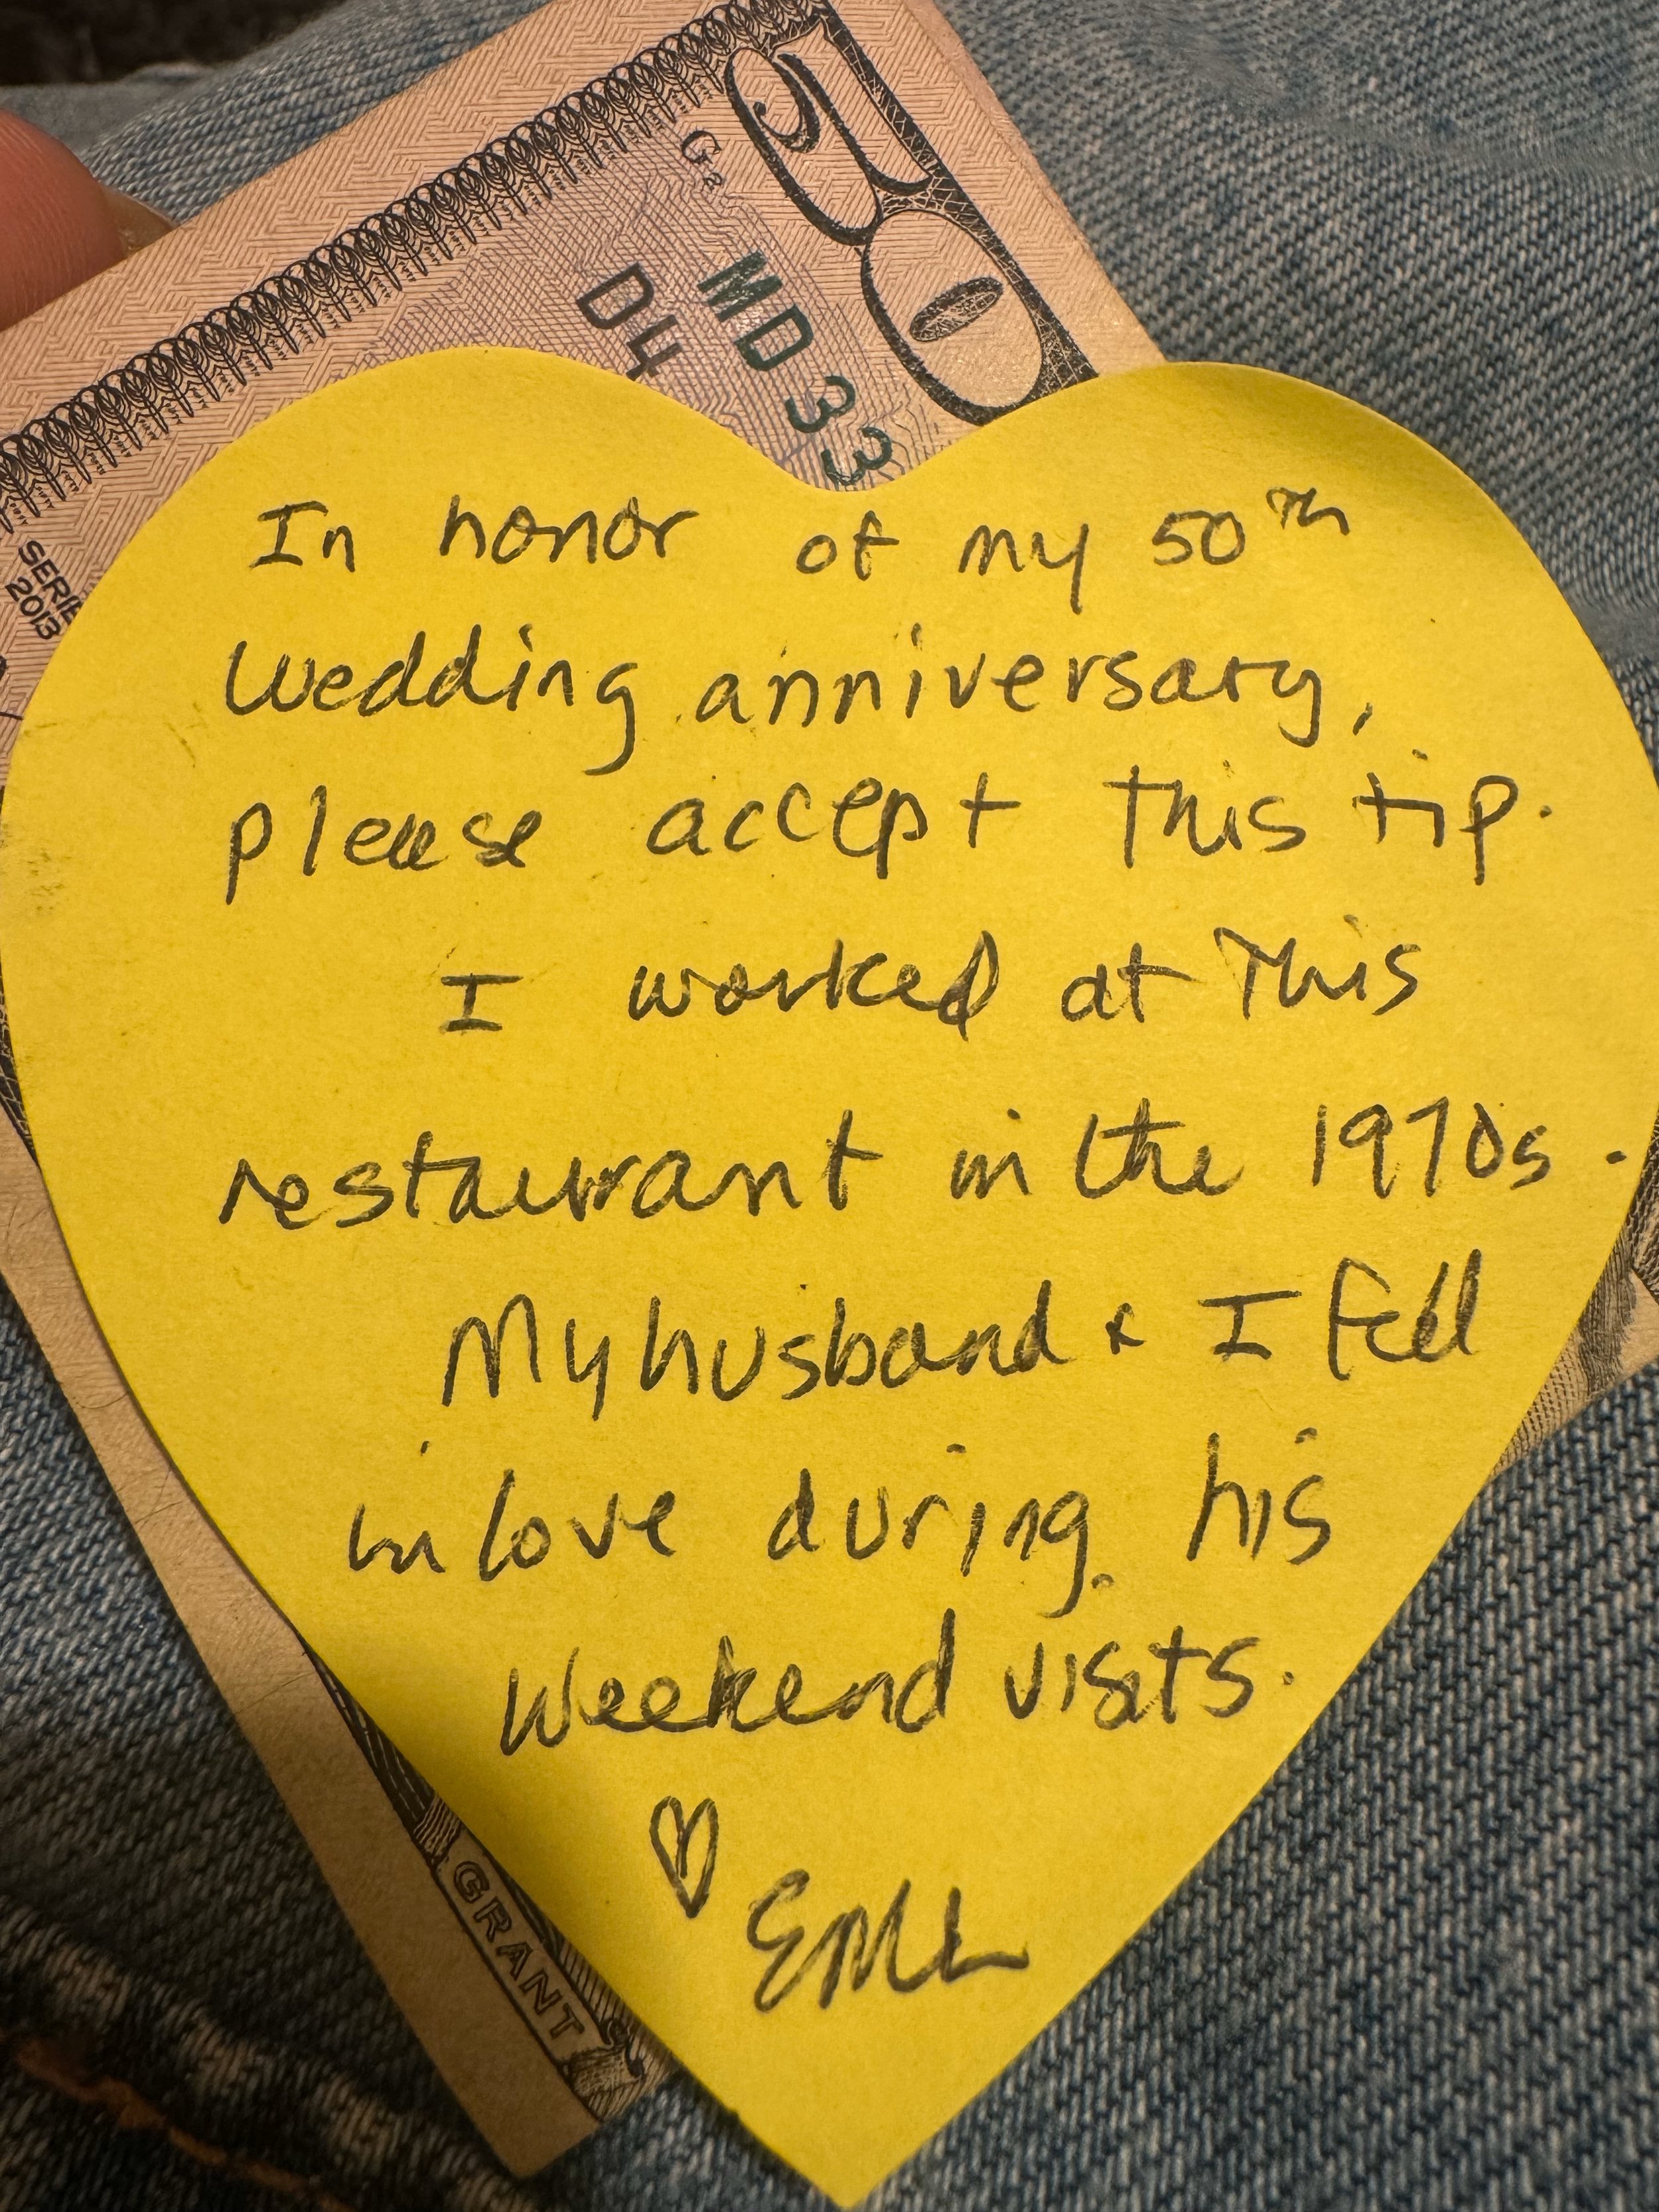 50
G2
MD33
D4
SERIE
2013
In honor of my 50th
wedding anniversary,
please accept this tip.
I worked at this
restaurant in the 1970s.
My husband & I fell
in love during his
weekend visits.
♡ EML
GRANT